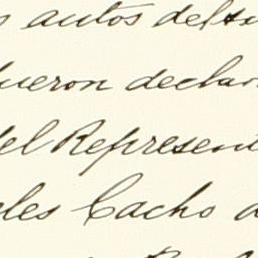 autos del
fueron declar
del Represent
les Cacho